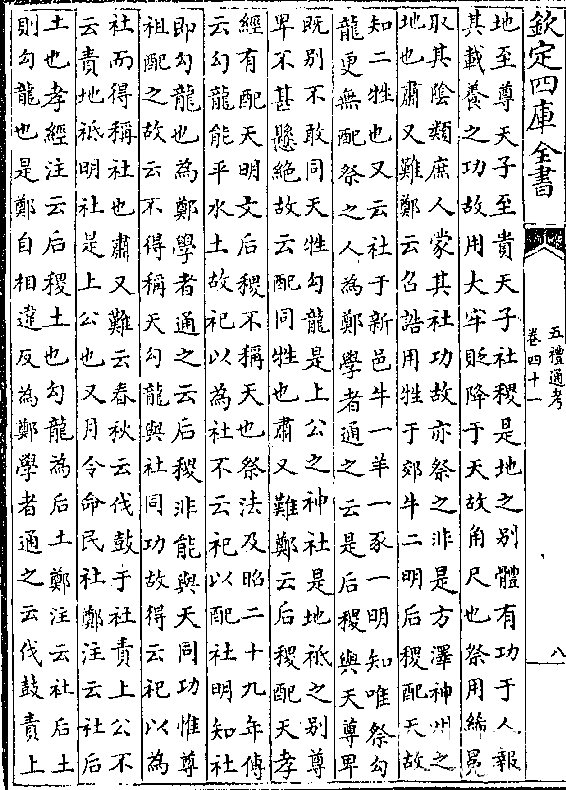 欽定四庫全書
五禮通考
卷四十一
八
地至尊天子至貴天子社稷是地之別體有功于人報
其載養之功故用大牢貶降于天故角尺也祭用絺冕
取其陰類庶人蒙其社功故亦祭之非是方澤神州之
地也肅又難鄭云召誥用牲于郊牛二明后稷配天故
知二牲也又云社于新邑牛一羊一豕一明知唯祭勾
龍更無配祭之人為鄭學者通之云是后稷與天尊卑
既別不敢同天牲勾龍是上公之神社是地祗之別尊
卑不甚懸絶故云配同牲也肅又難鄭云后稷配天孝
經有配天明文后稷不稱天也祭法及昭二十九年傳
云勾龍能平水土故祀以為社不云祀以配社明知社
即勾龍也為鄭學者通之云后稷非能與天同功惟尊
祖配之故云不得稱天勾龍與社同功故得云祀以為
社而得稱社也肅又難云春秋云伐鼓于社責上公不
云責地祗明社是上公也又月令命民社鄭注云社后
土也孝經注云后稷土也勾龍為后土鄭注云社后土
則勾龍也是鄭自相違反為鄭學者通之云伐鼓責上